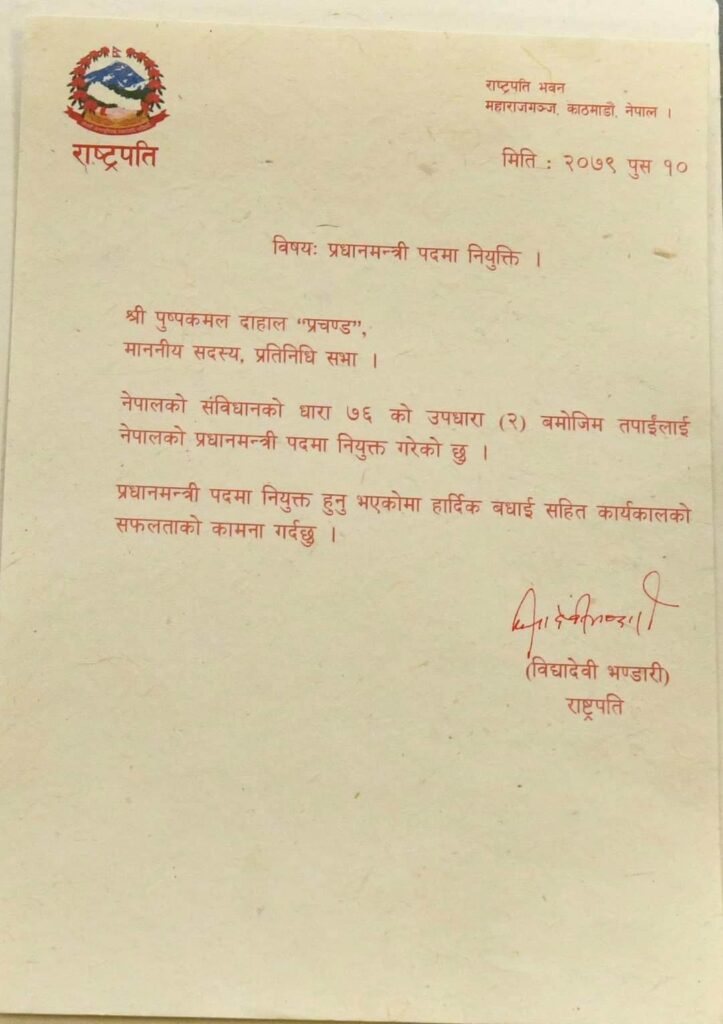 राष्ट्रपति
राष्ट्रपति भवन
महाराजगञ्ज, काठमाडौं, नेपाल ।
मिति : २०७९ पुस १०
विषयः प्रधानमन्त्री पदमा नियुक्ति ।
श्री पुष्पकमल दाहाल “प्रचण्ड”,
माननीय सदस्य, प्रतिनिधि सभा ।
नेपालको संविधानको धारा ७६ को उपधारा (२) बमोजिम तपाईंलाई
नेपालको प्रधानमन्त्री पदमा नियुक्त गरेको छु ।
प्रधानमन्त्री पदमा नियुक्त हुनु भएकोमा हार्दिक बधाई सहित कार्यकालको
सफलताको कामना गर्दछु ।
(विद्यादेवी भण्डारी)
राष्ट्रपति